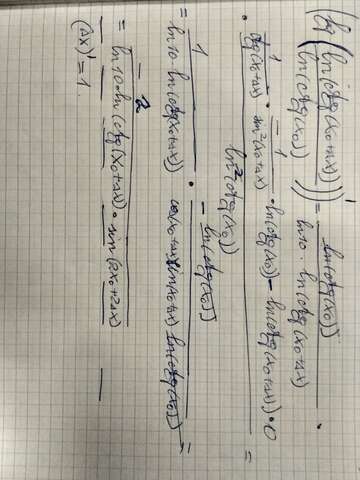 (lg (ln(ctg(x₀+Δx)) / ln(ctg(x₀))))' = ln(ctg(x₀)) / (ln10 · ln(ctg(x₀+Δx))) ·
· (1 / ctg(x₀+Δx) · −1 / sin²(x₀+Δx) · ln(ctg(x₀)) − ln(ctg(x₀+Δx)) · 0) / ln²(ctg(x₀)) =
= 1 / (ln10 · ln(ctg(x₀+Δx))) · − ln(ctg(x₀)) / (cos(x₀+Δx) sin(x₀+Δx) ln(ctg(x₀))) =
= −2 / (ln10 · ln(ctg(x₀+Δx)) · sin(2x₀+2Δx))
(Δx)' = 1.